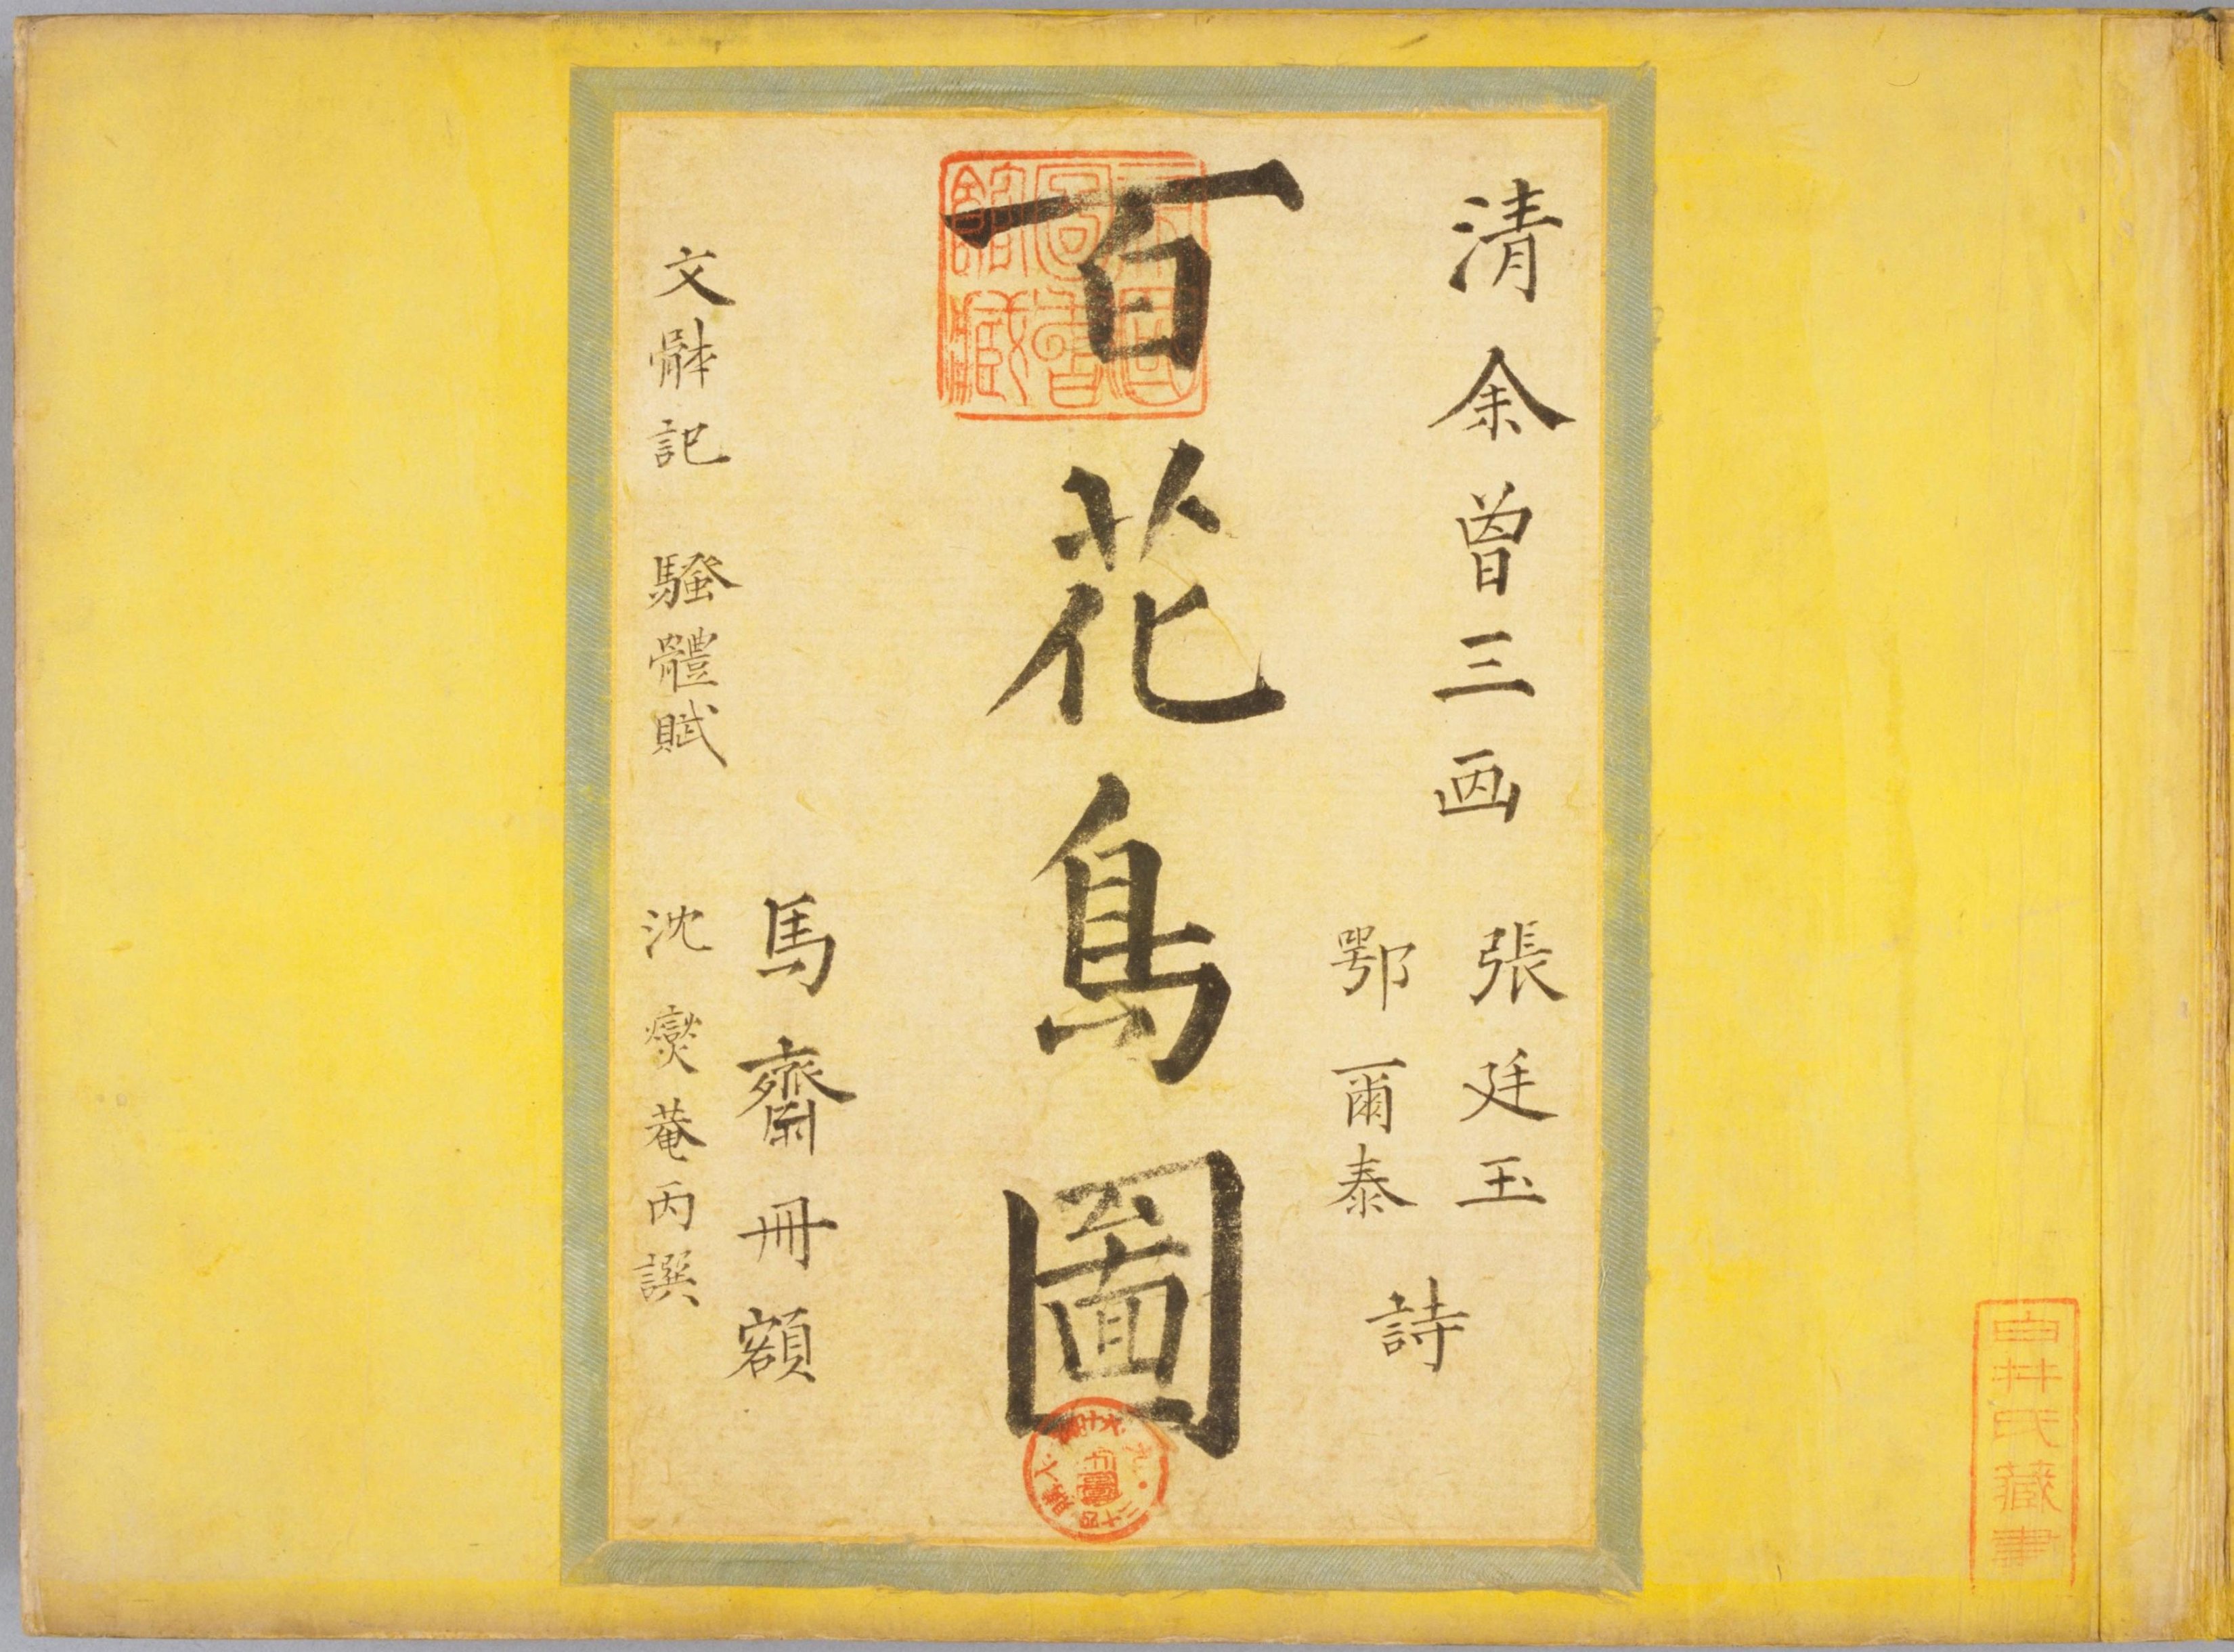 清余曽三画
張廷玉
鄂爾泰
詩
百花鳥圖
馬齋冊額
文骵記 騷體賦
沈爕菴丙譔
白井氏藏書